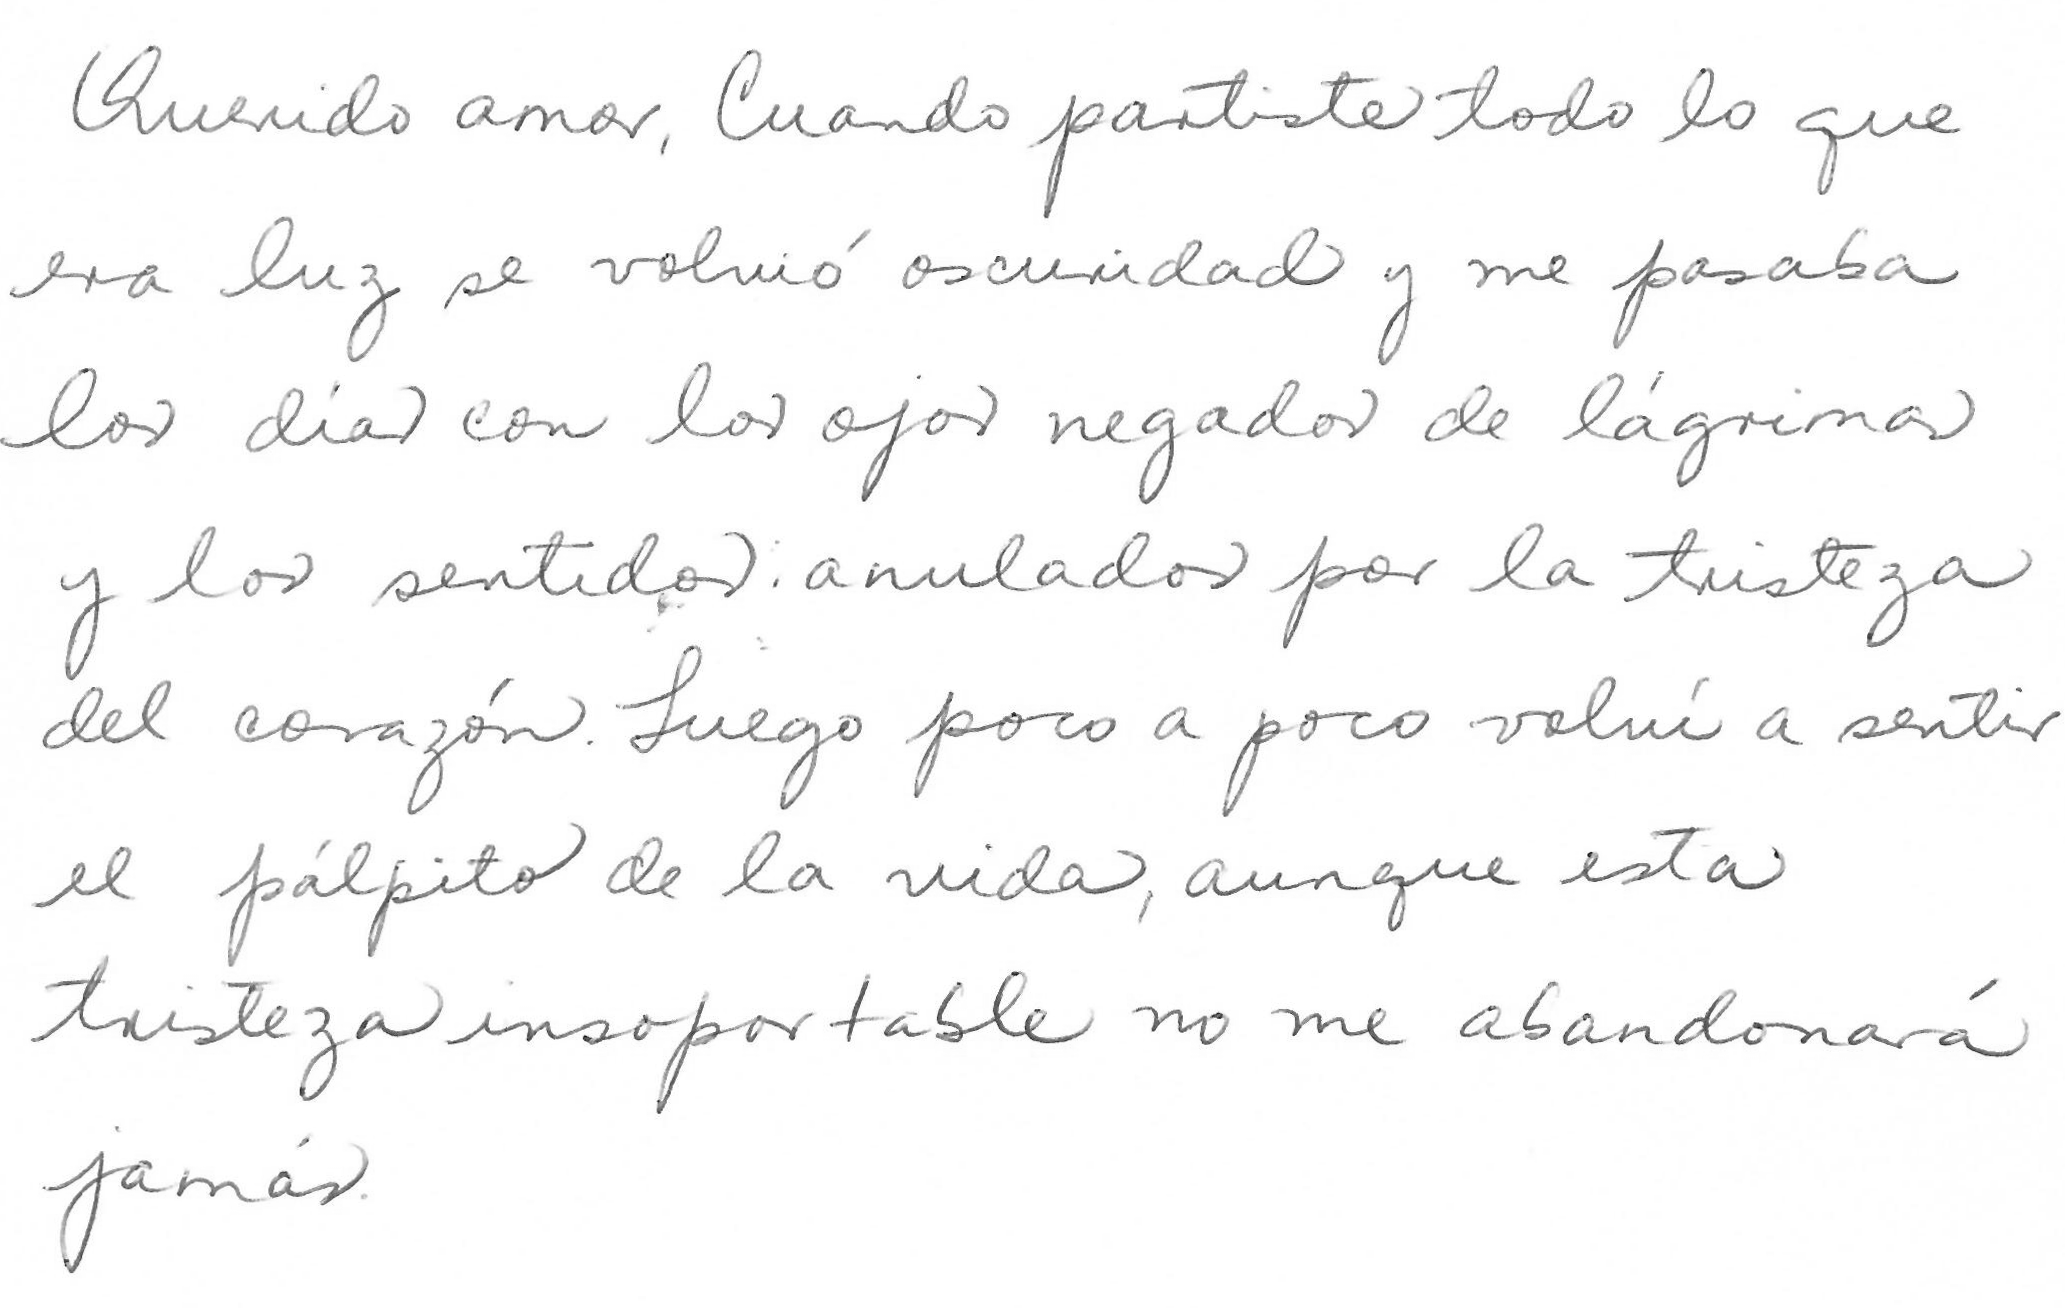 Querido amor, Cuando partiste todo lo que
era luz se volvió oscuridad y me pasaba
los días con los ojos negados de lágrimas
y los sentidos anulados por la tristeza
del corazón. Luego poco a poco volví a sentir
el pálpito de la vida, aunque esta
tristeza insoportable no me abandonará
jamás.